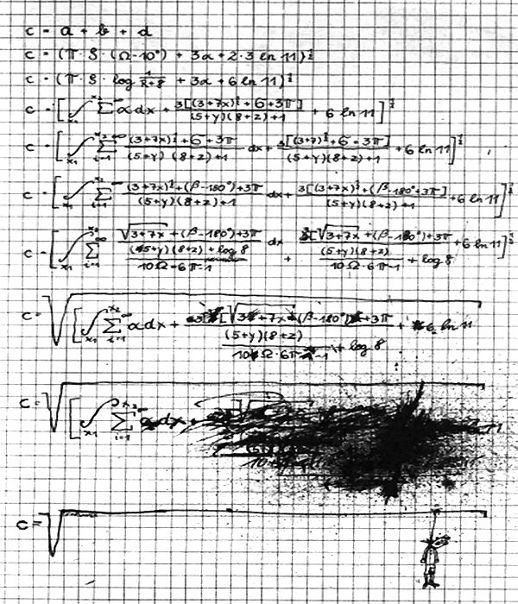 c = a + b + d
c = (π · S · (Ω-10°) + 3a + 2·3 ln 11)^½
c = (π · S · log 1/(R+8) + 3a + 6 ln 11)^½
c = [∫x₁^x₂ Σ^∞ α dx + 3[(3+7x)^½ + 6 + 3π]/((5+y)(8+z)+1) + 6 ln 11]^½
c = [∫x₁^x₂ Σi=1^∞ ((3+7x)^½ + 6 + 3π)/((5+y)(8+z)+1) dx + 3[(3+7)^½ + 6 + 3π]/((5+y)(8+z)+1) + 6 ln 11]^½
c = [∫x₁^x₂ Σi=1^∞ ((3+7x)^½ + (β-180°) + 3π)/((5+y)(8+z)+1) dx + 3[(3+7x)^½ + (β-180° + 3π]/((5+y)(8+z)+1) + 6 ln 11]^½
c = [∫x₁^x₂ Σi=1^∞ (√(3+7x) + (β-180°) + 3π)/((5+y)(8+z) + log 8)/(10Ω·6π-1) dx + 3[√(3+7x) + (β-180°) + 3π/((5+y)(8+z))/(10Ω·6π-1) + log 8 + 6 ln 11]^½
c = √[∫x₁^x₂ Σi=1^∞ α dx + [√(3+7x) (β-180°) + 3π/((5+y)(8+z))/(10 Ω·6π-1) + log 8 + 6 ln 11
c = √[∫x₁^x₂ Σi=1^∞ dx +
c = √